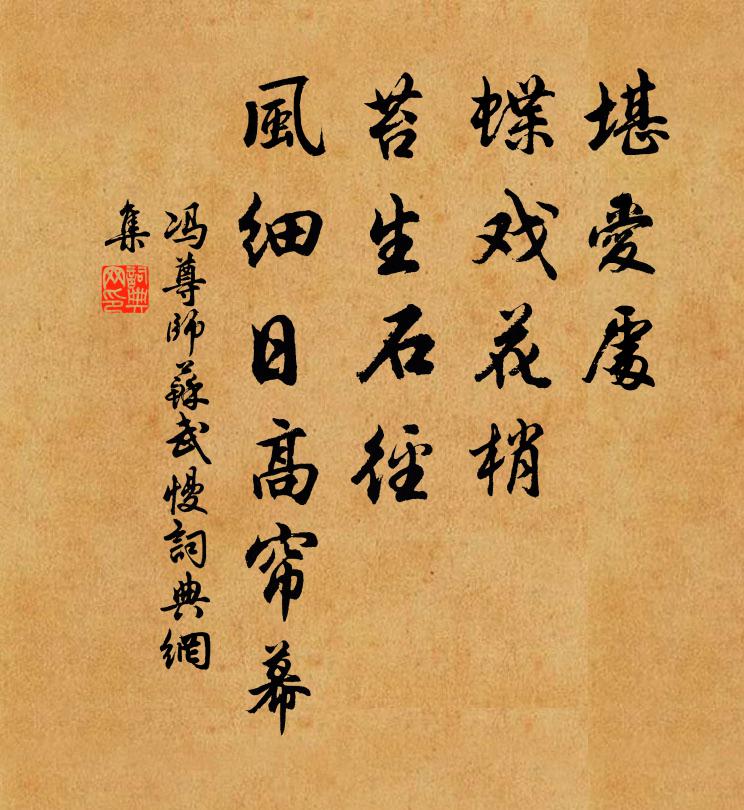 堪愛處
蝶戏花梢
苔生石徑
風细日高帘幕
冯尊師蘇武慢詞典網
集
詞典
网印